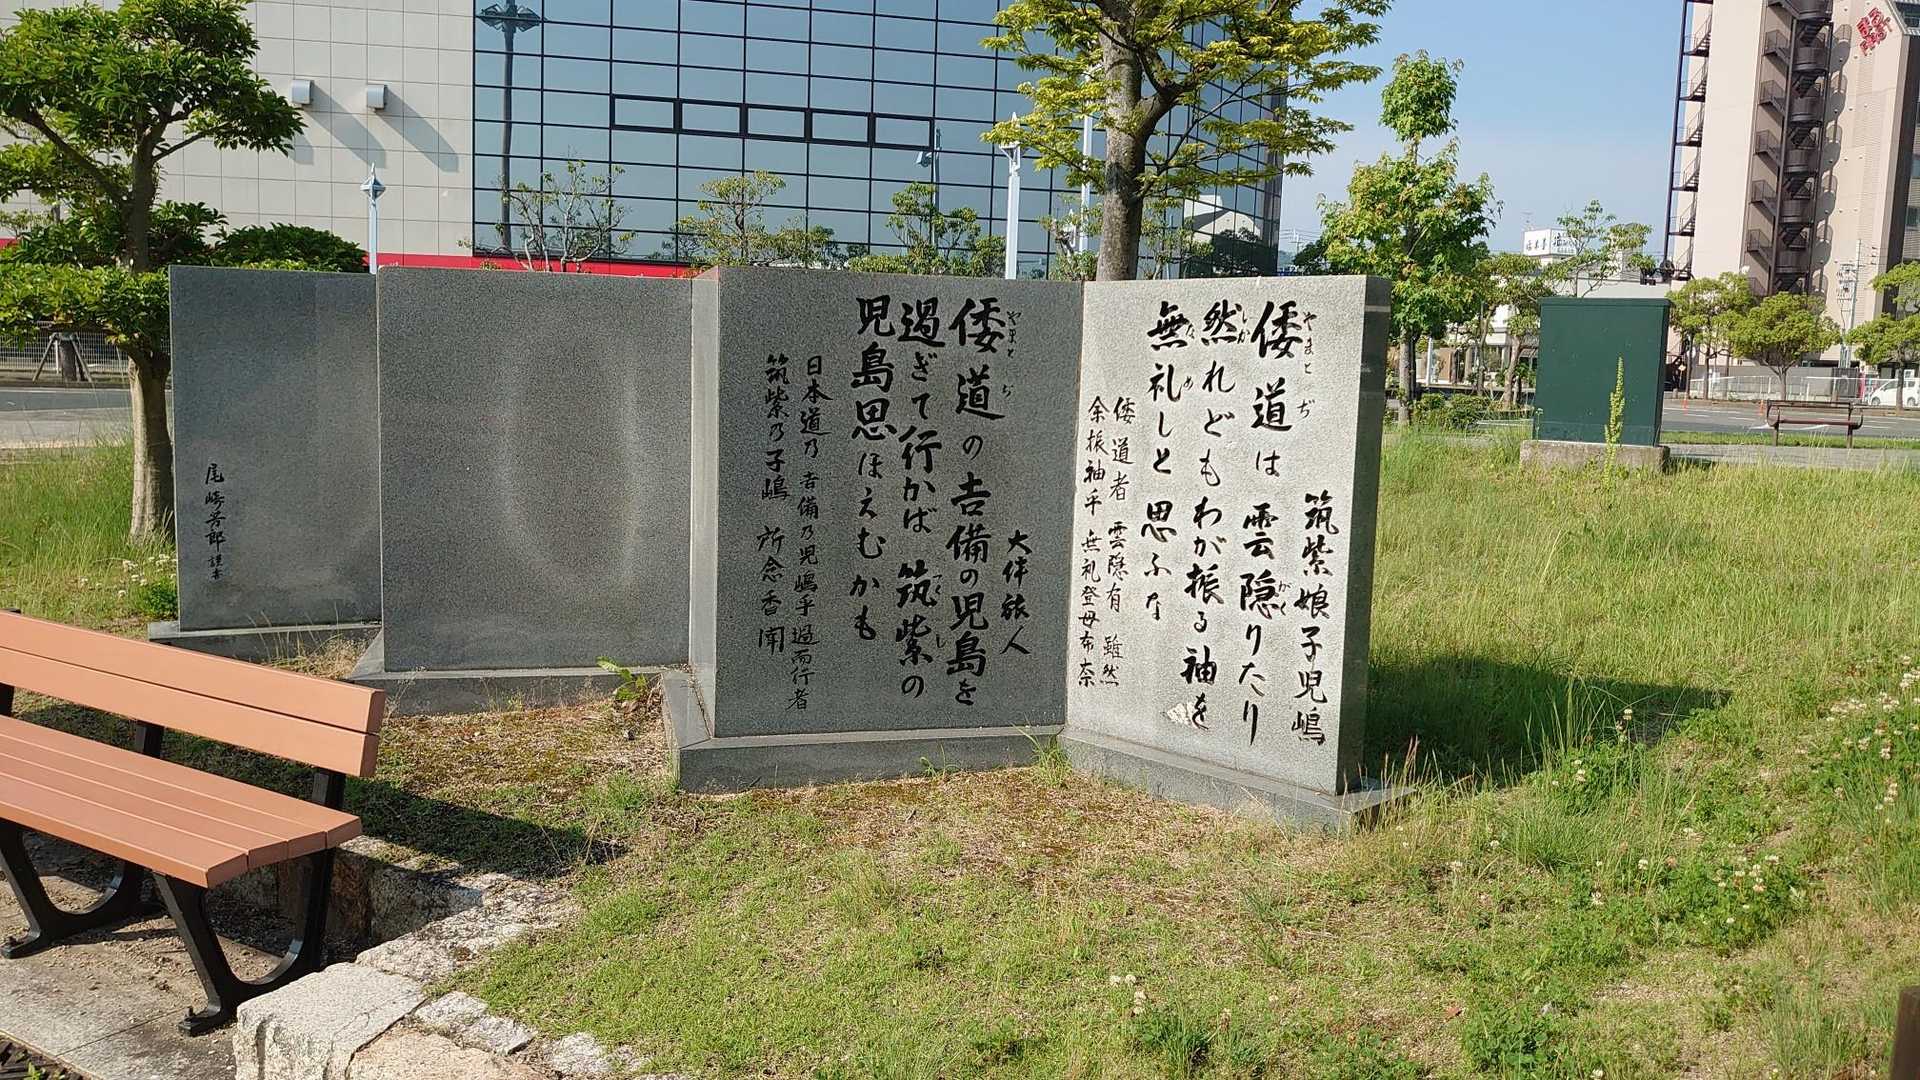 筑紫娘子児嶋
やまとぢ がく
倭道は 雲隠りたり
しか
然れどもわが振る袖を
なめ
無礼しと 思ふな
倭道者 雲隠有 雖然
余振袖乎 無礼登母布奈
大伴旅人
やまとぢ
倭道の吉備の児島を
つくし
過ぎて行かば 筑紫の
児島思ほえむかも
日本道乃 吉備乃児嶋乎過而行者
筑紫乃子嶋 所念香聞
尾崎芳郎謹書